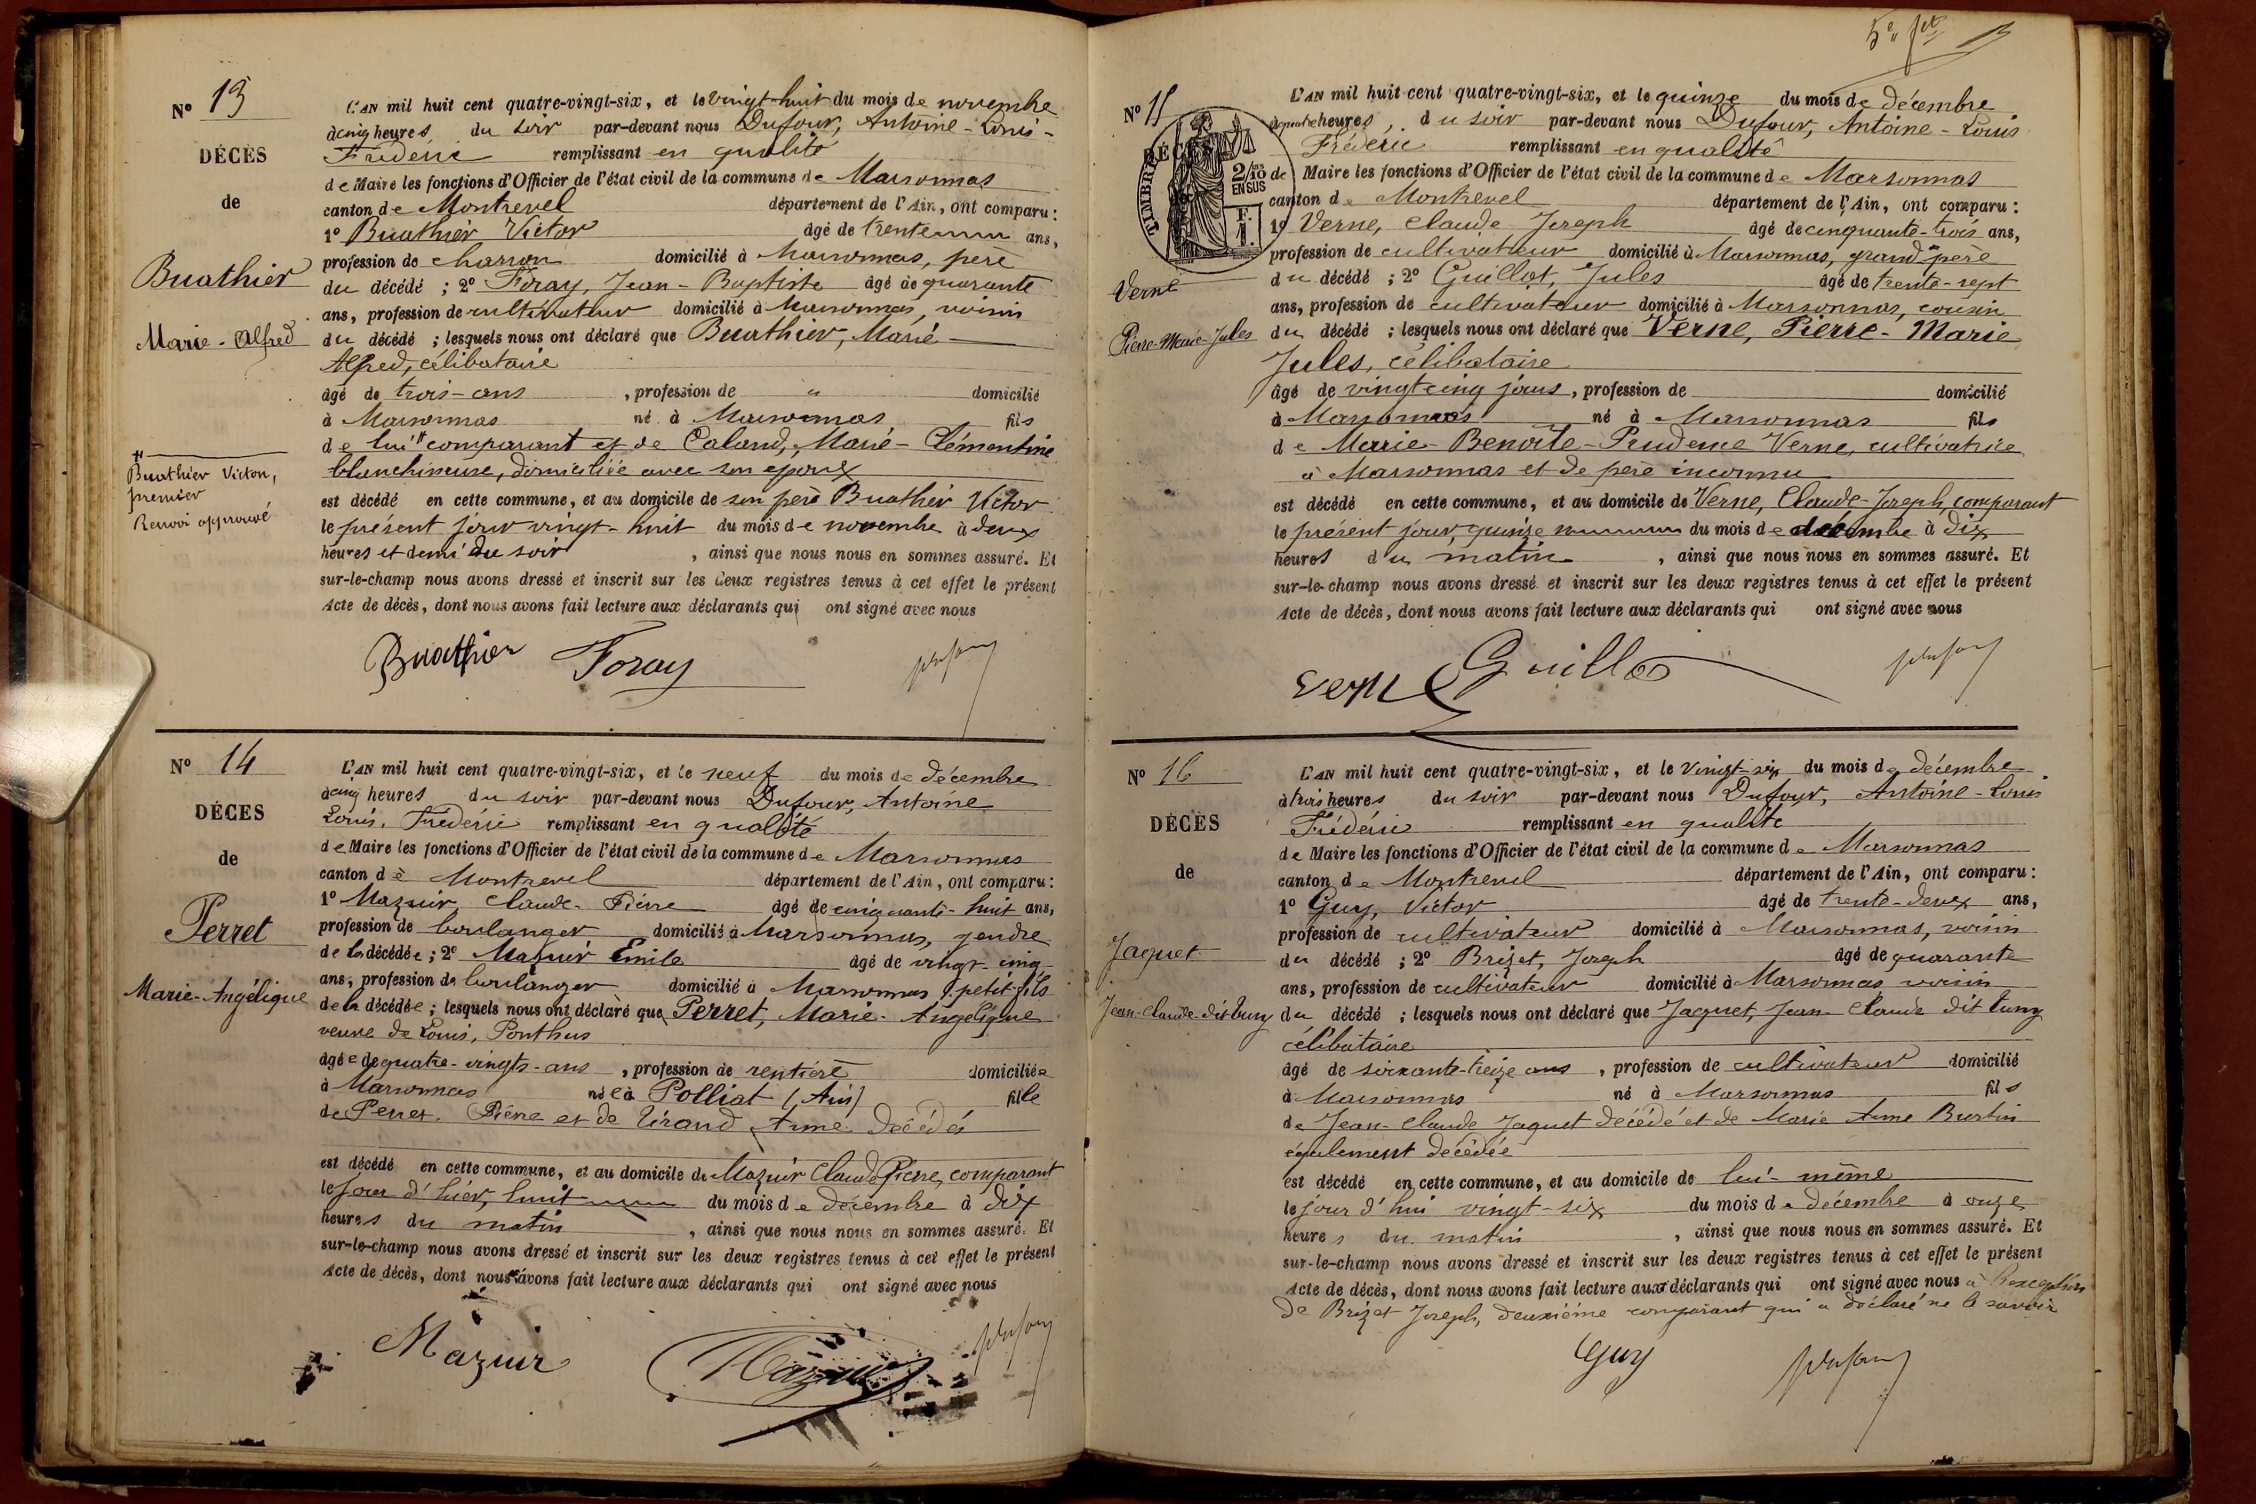 N° 13
DÉCÈS
de
Buathier
Marie-Alfred
Buathier Victor,
premier
Renvoi approuvé
L'AN mil huit cent quatre-vingt-six, et le vingt-huit du mois de novembre
à cinq heures du soir par-devant nous Dufour, Antoine-Louis-
Frédéric remplissant en qualité
de Maire les fonctions d'Officier de l'état civil de la commune de Marsonnas
canton de Montrevel département de l'Ain, ont comparu :
1° Buathier Victor âgé de trente ans,
profession de charron domicilié à Marsonnas, père
du décédé ; 2° Foray, Jean-Baptiste âgé de quarante
ans, profession de cultivateur domicilié à Marsonnas, voisin
du décédé ; lesquels nous ont déclaré que Buathier, Marie-
Alfred, célibataire
âgé de trois-ans , profession de " domicilié
à Marsonnas né à Marsonnas fils
de lui comparant et de Caland, Marie-Clémentine
blanchisseuse, domiciliée avec son époux
est décédé en cette commune, et au domicile de son père Buathier Victor
le présent jour vingt-huit du mois de novembre à deux
heures et demi du soir , ainsi que nous nous en sommes assuré. Et
sur-le-champ nous avons dressé et inscrit sur les deux registres tenus à cet effet le présent
Acte de décès, dont nous avons fait lecture aux déclarants qui ont signé avec nous
Buathier Foray
N° 14
DÉCÈS
de
Perret
Marie-Angélique
L'AN mil huit cent quatre-vingt-six, et le neuf du mois de décembre
à cinq heures du soir par-devant nous Dufour, Antoine
Louis, Frédéric remplissant en qualité
de Maire les fonctions d'Officier de l'état civil de la commune de Marsonnas
canton de Montrevel département de l'Ain, ont comparu :
1° Mazuir, Claude-Pierre âgé de cinquante-huit ans,
profession de boulanger domicilié à Marsonnas, gendre
de la décédée ; 2° Mazuir Emile âgé de vingt-cinq
ans, profession de boulanger domicilié à Marsonnas, petit-fils
de la décédée ; lesquels nous ont déclaré que Perret, Marie-Angélique
veuve de Louis, Ponthus
âgée de quatre-vingts-ans , profession de rentière domiciliée
à Marsonnas née à Polliat (Ain) fille
de Perret, Pierre et de Tirand Anne décédés
est décédé en cette commune, et au domicile de Mazuir Claude Pierre, comparant
le jour d'hier, huit du mois de décembre à dix
heures du matin , ainsi que nous nous en sommes assuré. Et
sur-le-champ nous avons dressé et inscrit sur les deux registres tenus à cet effet le présent
Acte de décès, dont nous avons fait lecture aux déclarants qui ont signé avec nous
Mazuir Mazuir
5e
N° 15
DÉCÈS
TIMBRE
2/10 es
EN SUS
F.
1.
Verne
Pierre-Marie-Jules
L'AN mil huit cent quatre-vingt-six, et le quinze du mois de décembre
à quatre heures du soir par-devant nous Dufour, Antoine-Louis
Frédéric remplissant en qualité
de Maire les fonctions d'Officier de l'état civil de la commune de Marsonnas
canton de Montrevel département de l'Ain, ont comparu :
1° Verne, Claude Joseph âgé de cinquante-trois ans,
profession de cultivateur domicilié à Marsonnas, grand père
du décédé ; 2° Guillot, Jules âgé de trente-sept
ans, profession de cultivateur domicilié à Marsonnas, cousin
du décédé ; lesquels nous ont déclaré que Verne, Pierre-Marie
Jules, célibataire
âgé de vingt-cinq jours , profession de domicilié
à Marsonnas né à Marsonnas fils
de Marie-Benoîte-Prudence Verne, cultivatrice
à Marsonnas et de père inconnu
est décédé en cette commune, et au domicile de Verne, Claude-Joseph, comparant
le présent jour, quinze du mois de décembre à dix
heures du matin , ainsi que nous nous en sommes assuré. Et
sur-le-champ nous avons dressé et inscrit sur les deux registres tenus à cet effet le présent
Acte de décès, dont nous avons fait lecture aux déclarants qui ont signé avec nous
Verne Guillot
N° 16
DÉCÈS
de
Jaquet
Jean-Claude dit Cuny
L'AN mil huit cent quatre-vingt-six, et le vingt-six du mois de décembre
à trois heures du soir par-devant nous Dufour, Antoine-Louis
Frédéric remplissant en qualité
de Maire les fonctions d'Officier de l'état civil de la commune de Marsonnas
canton de Montrevel département de l'Ain, ont comparu :
1° Guy, Victor âgé de trente-deux ans,
profession de cultivateur domicilié à Marsonnas, voisin
du décédé ; 2° Brizet, Joseph âgé de quarante
ans, profession de cultivateur domicilié à Marsonnas voisin
du décédé ; lesquels nous ont déclaré que Jaquet, Jean Claude dit Cuny
célibataire
âgé de soixante-treize ans , profession de cultivateur domicilié
à Marsonnas né à Marsonnas fils
de Jean-Claude Jaquet décédé et de Marie Anne Burtin
également décédée
est décédé en cette commune, et au domicile de lui-même
le jour d'hui vingt-six du mois de décembre à onze
heures du matin , ainsi que nous nous en sommes assuré. Et
sur-le-champ nous avons dressé et inscrit sur les deux registres tenus à cet effet le présent
Acte de décès, dont nous avons fait lecture aux déclarants qui ont signé avec nous à l'exception
de Brizet Joseph, deuxième comparant qui a déclaré ne le savoir
Guy